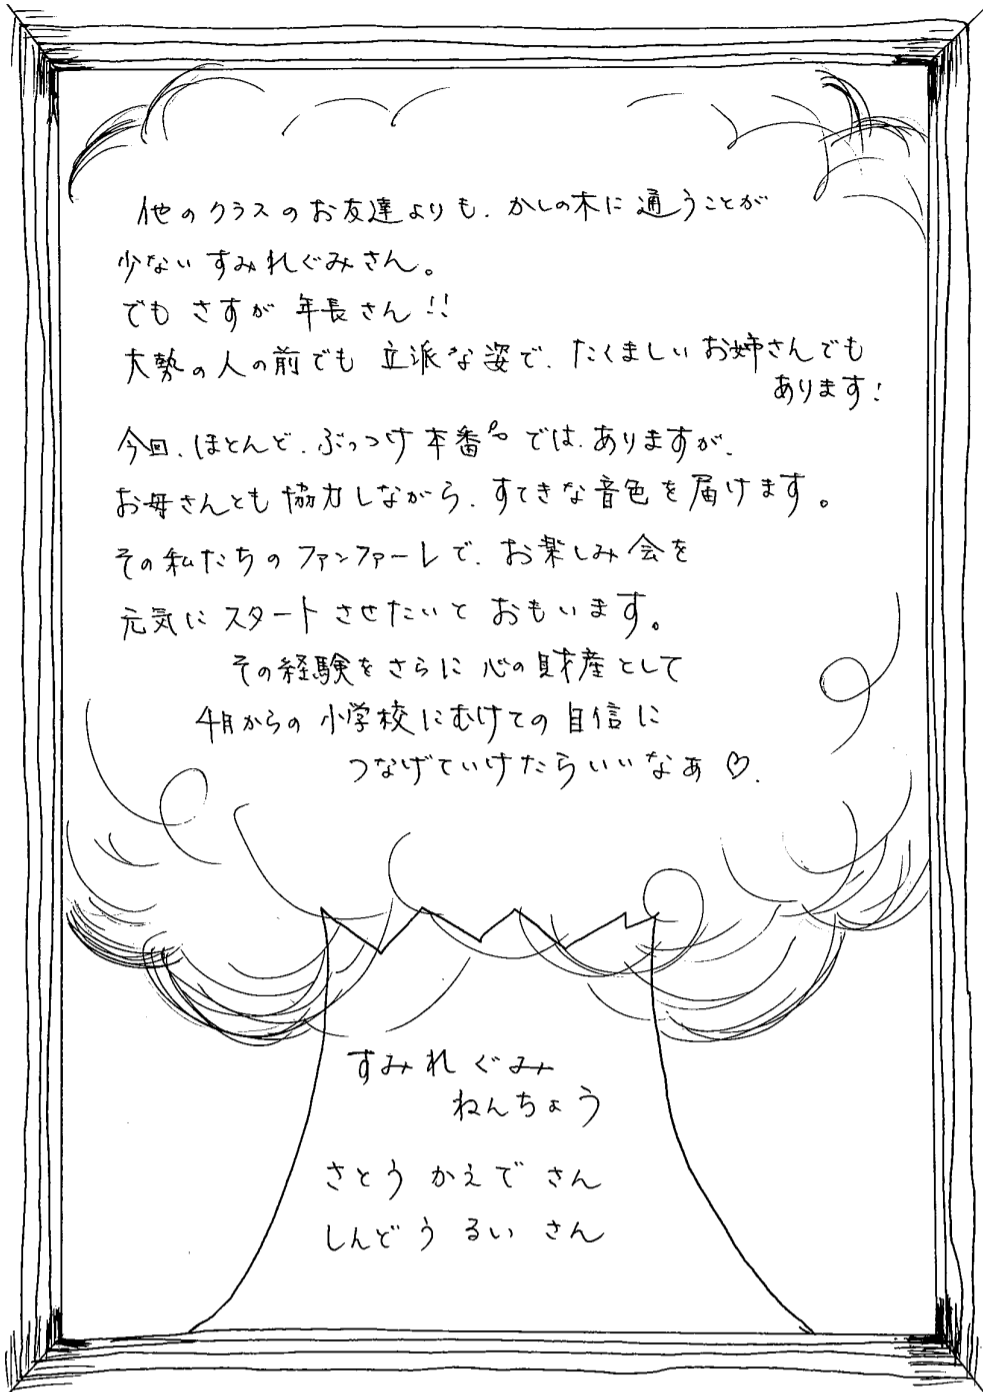 他のクラスのお友達よりも、かしの木に通うことが
少ないすみれぐみさん。
でも さすが 年長さん!!
大勢の人の前でも 立派な姿で、たくましい お姉さんでも
あります!
今回、ほとんど、ぶっつけ本番 では、ありますが、
お母さんとも 協力しながら、すてきな音色を届けます。
その私たちの ファンファーレで、お楽しみ会を
元気に スタートさせたいと おもいます。
その経験をさらに 心の財産として
4月からの 小学校にむけての 自信に
つなげていけたらいいなぁ♡.
すみれぐみ
ねんちょう
さとう かえで さん
しんどう るい さん